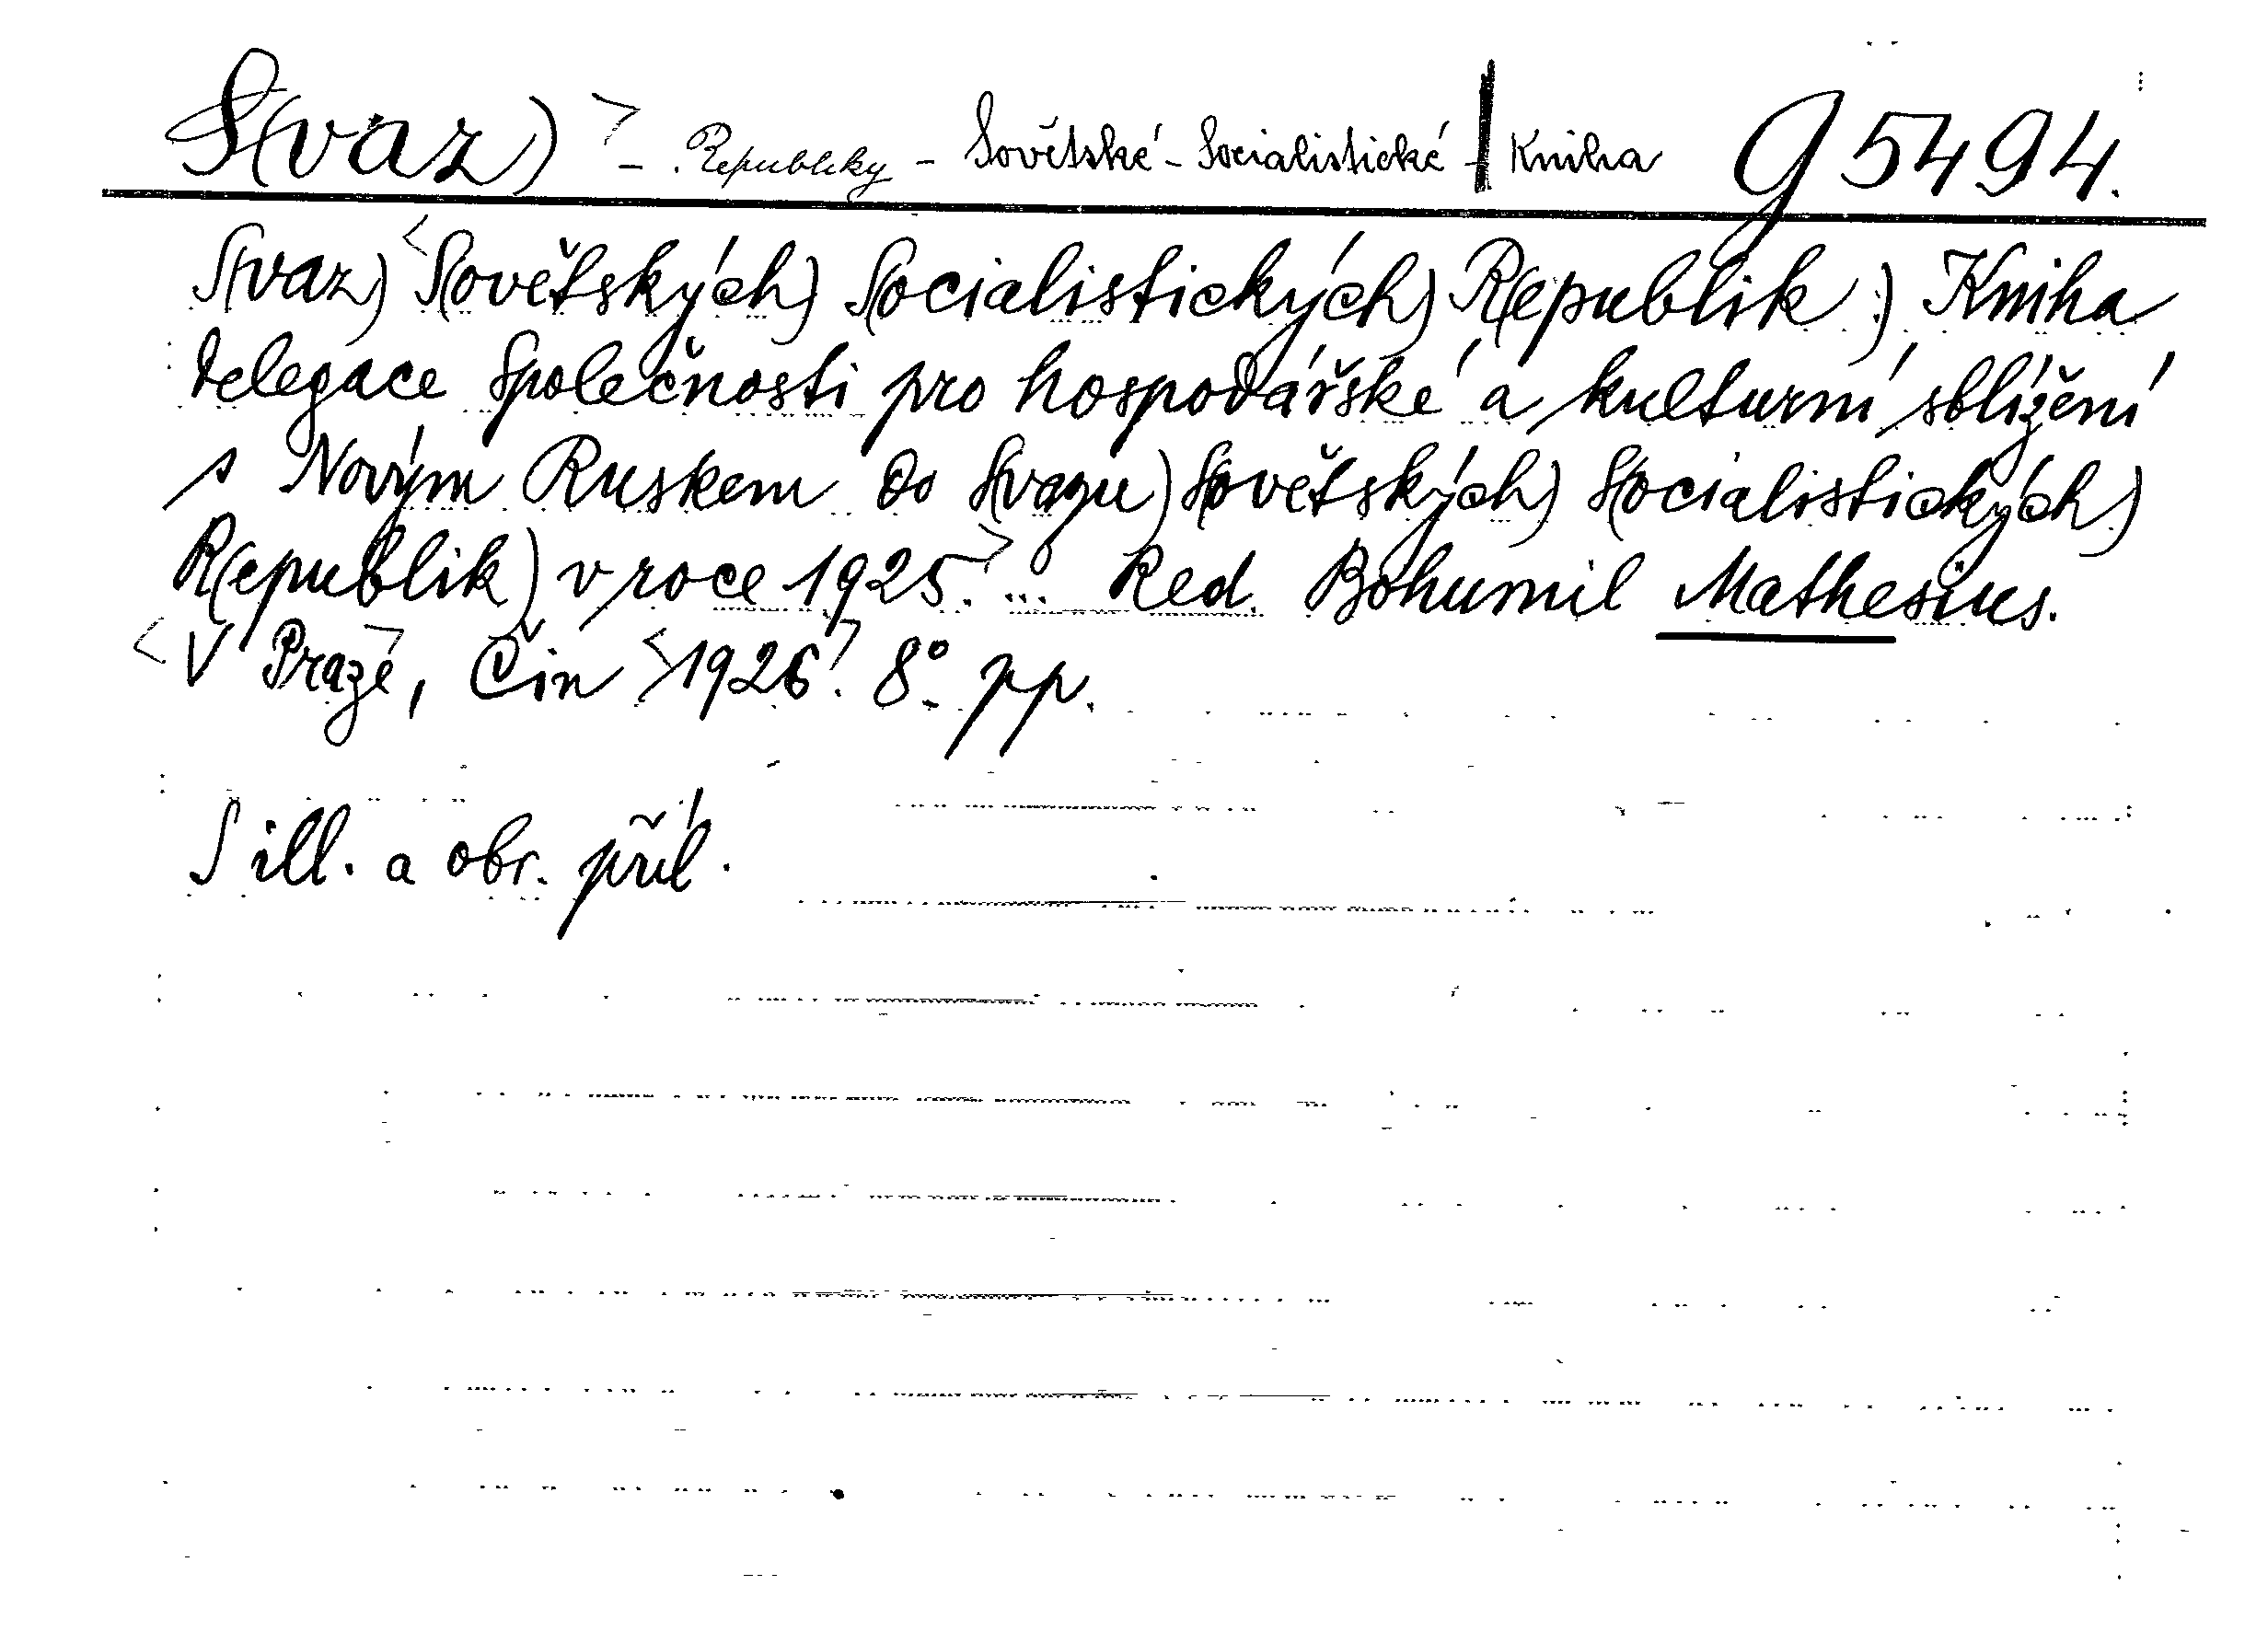 S(vaz) > - Republiky - Sovětské - Socialistické - | Kniha g 5494.
S(vaz) <S(ovětských) S(ocialistických) R(epublik:) Kniha
delegace Společnosti pro hospodářské a kulturní sblížení
s Novým Ruskem do S(vazu) S(ovětských) S(ocialistických)
R(epublik) v roce 1925.> ... Red. Bohumil Mathesius.
<V Praze>, Čin <1926>. 8°. pp.
S ill. a obr. příl.